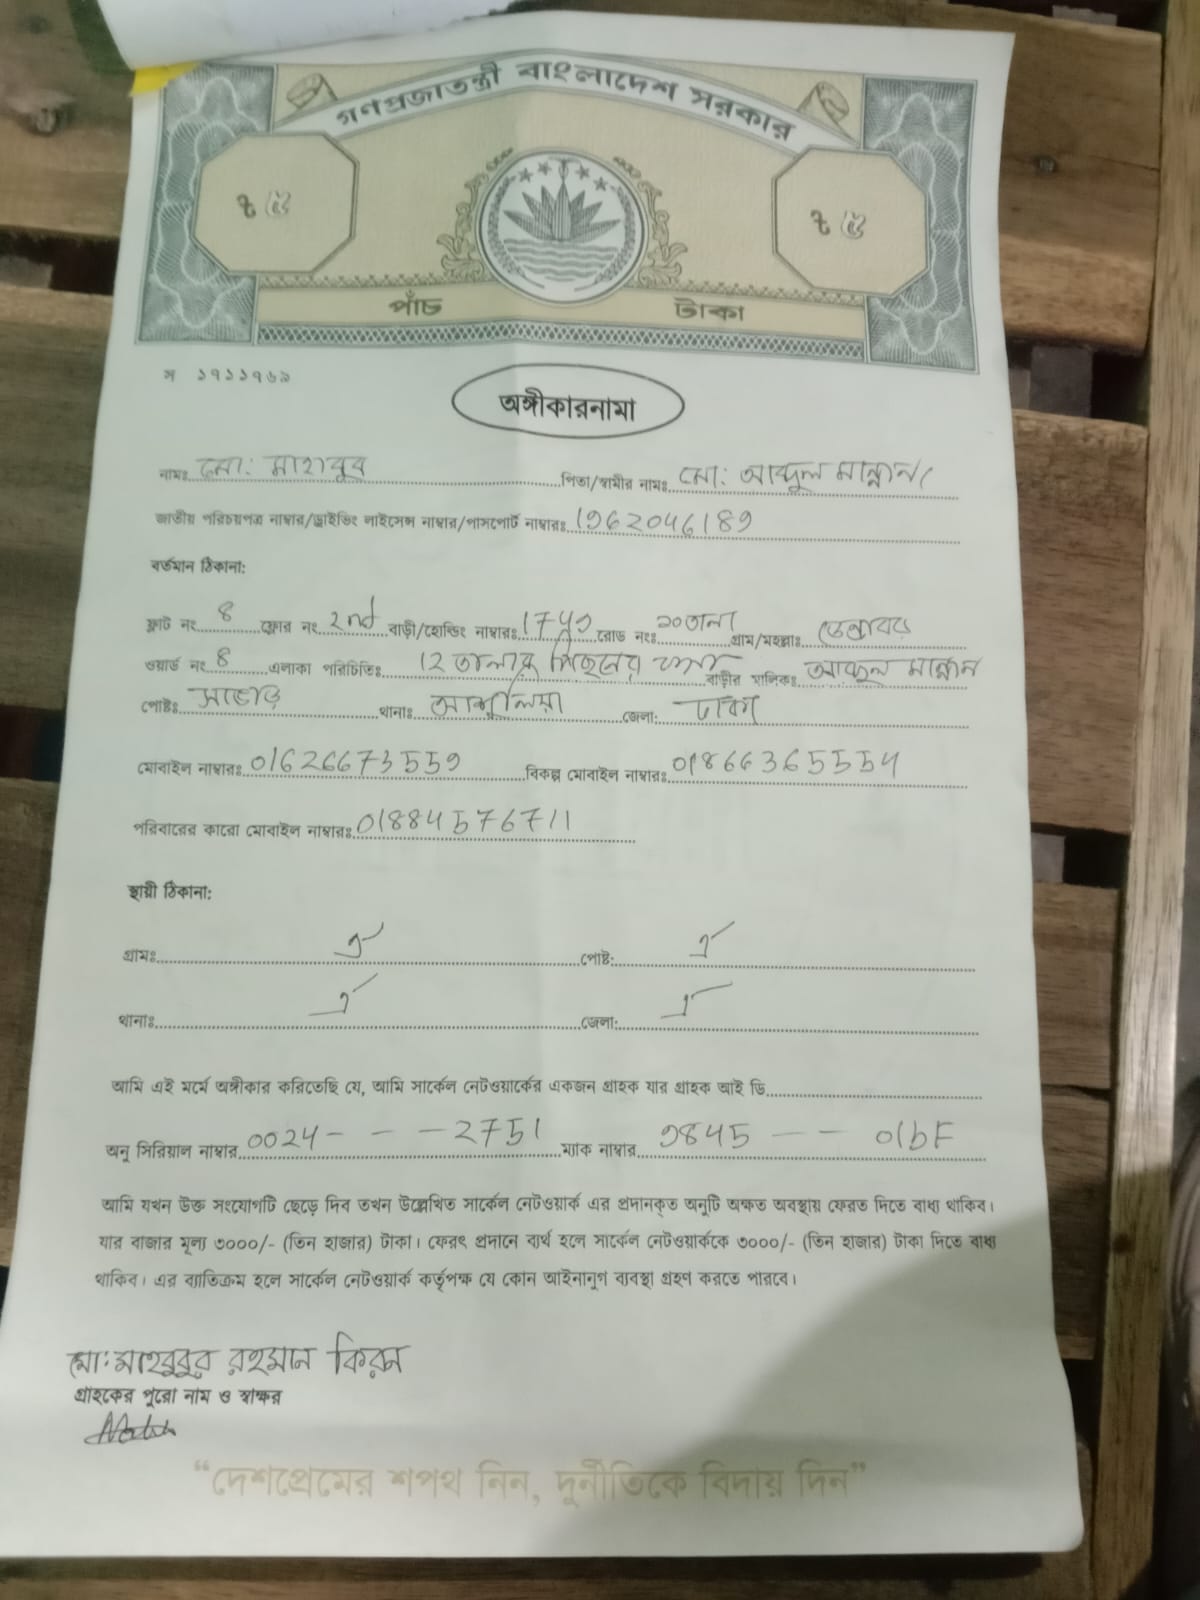 গণপ্রজাতন্ত্রী বাংলাদেশ সরকার
৳ ৫ ৳ ৫
পাঁচ টাকা
স ১৭১১৭৬৯
অঙ্গীকারনামা
নামঃ মো: মাহাবুব পিতা/স্বামীর নামঃ মো: আব্দুল মান্নান
জাতীয় পরিচয়পত্র নাম্বার/ড্রাইভিং লাইসেন্স নাম্বার/পাসপোর্ট নাম্বারঃ 1962046189
বর্তমান ঠিকানা:
ফ্লাট নং 8 ফ্লোর নং 2nd বাড়ী/হোল্ডিং নাম্বারঃ রোড নং ১০তলা গ্রাম/মহল্লাঃ
ওয়ার্ড নং 8 এলাকা পরিচিতিঃ 12 তালার পিছনের বাড়ীর মালিকঃ আব্দুল মান্নান
পোষ্টঃ সাভার থানাঃ আশুলিয়া জেলা: ঢাকা
মোবাইল নাম্বারঃ 01626673559 বিকল্প মোবাইল নাম্বারঃ 01866365554
পরিবারের কারো মোবাইল নাম্বারঃ 01884576711
স্থায়ী ঠিকানা:
গ্রামঃ ঐ পোষ্ট: ঐ
থানাঃ ঐ জেলা: ঐ
আমি এই মর্মে অঙ্গীকার করিতেছি যে, আমি সার্কেল নেটওয়ার্কের একজন গ্রাহক যার গ্রাহক আই ডি
অনু সিরিয়াল নাম্বার 0024- - -2751 ম্যাক নাম্বার 9845 - - 01bF
আমি যখন উক্ত সংযোগটি ছেড়ে দিব তখন উল্লেখিত সার্কেল নেটওয়ার্ক এর প্রদানকৃত অনুটি অক্ষত অবস্থায় ফেরত দিতে বাধ্য থাকিব।
যার বাজার মূল্য ৩০০০/- (তিন হাজার) টাকা। ফেরৎ প্রদানে ব্যর্থ হলে সার্কেল নেটওয়ার্ককে ৩০০০/- (তিন হাজার) টাকা দিতে বাধ্য
থাকিব। এর ব্যাতিক্রম হলে সার্কেল নেটওয়ার্ক কর্তৃপক্ষ যে কোন আইনানুগ ব্যবস্থা গ্রহণ করতে পারবে।
মো: মাহবুবুর রহমান কিরন
গ্রাহকের পুরো নাম ও স্বাক্ষর
“দেশপ্রেমের শপথ নিন, দুর্নীতিকে বিদায় দিন”